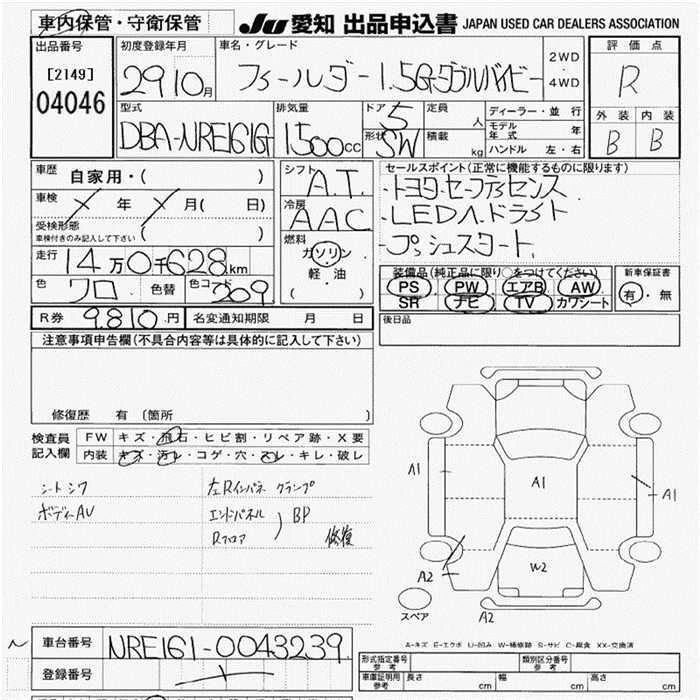 車内保管・守衛保管
JU 愛知 出品申込書 JAPAN USED CAR DEALERS ASSOCIATION
出品番号
[2149]
04046
初度登録年月
29 10月
車名・グレード
フィールダー 1.5Gダブルバイビー
2WD
・
4WD
評価点
R
外装 内装
B B
型式
DBA-NRE161G
排気量
1500cc
ドア 5
形状 SW
定員 人
積載 kg
ディーラー・並行
モデル年式 年
ハンドル 左・右
車歴 自家用・( )
車検 年 月( 日)
受検形態
車検付きのみ記入して下さい ( )
走行 14万0千628km
色 クロ 色替 色コード 209
シフト A.T.
冷房 AAC
燃料
ガソリン
・
軽・油
( )
セールスポイント(正常に機能するものに限ります)
・トヨタセーフティセンス
・LEDヘッドライト
・プッシュスタート
装備品(純正品に限り○をつけてください)
PS PW エアB AW
SR ナビ TV カワシート
新車保証書
有・無
R券 9,810円 名変通知期限 月 日
後日品
注意事項申告欄(不具合内容等は具体的に記入して下さい)
修復歴 有 〔箇所 〕
検査員記入欄
FW キズ・飛石・ヒビ割・リペア跡・X要
内装 キズ・汚レ・コゲ・穴・スレ・キレ・破レ
シートシワ
ボディーAU
左Rインパネ クランプ
エンドパネル
Rフロア
BP
修復
A1
A1
A1
A2
W2
A2
スペア
A-キズ E-エクボ U-凹み W-補修跡 S-サビ C-腐食 XX-交換済
車台番号 NRE161-0043239
登録番号
形式指定番号 参考
類別区分番号 参考
車庫証明用 参考 長さ cm 幅 cm 高さ cm